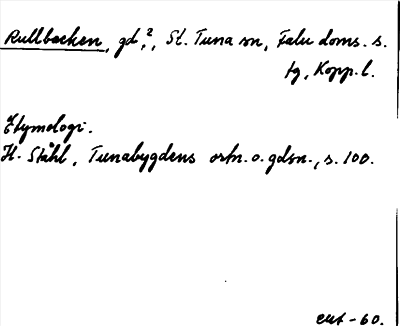 Rullbacken, gd,², St. Tuna sn, Falu doms. s.
tg, Kopp. l.
Etymologi.
H. Ståhl, Tunabygdens ortn. o. gdsn., s. 100.
-60.